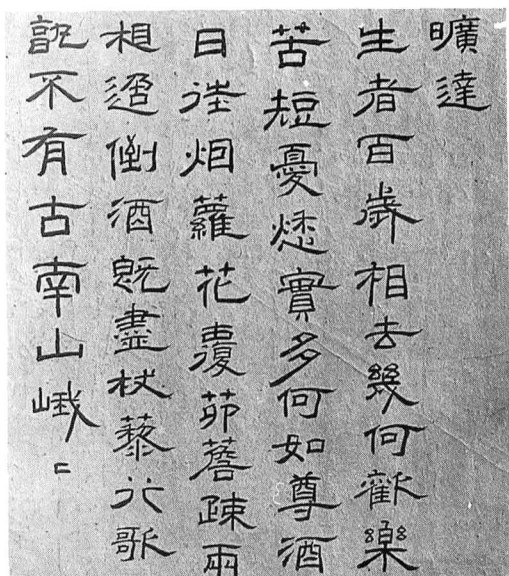 曠達
生者百歲相去幾何歡樂
苦短憂愁實多何如尊酒
日往烟蘿花覆茆簷疎雨
相過倒酒既盡杖藜行歌
孰不有古南山峨〻